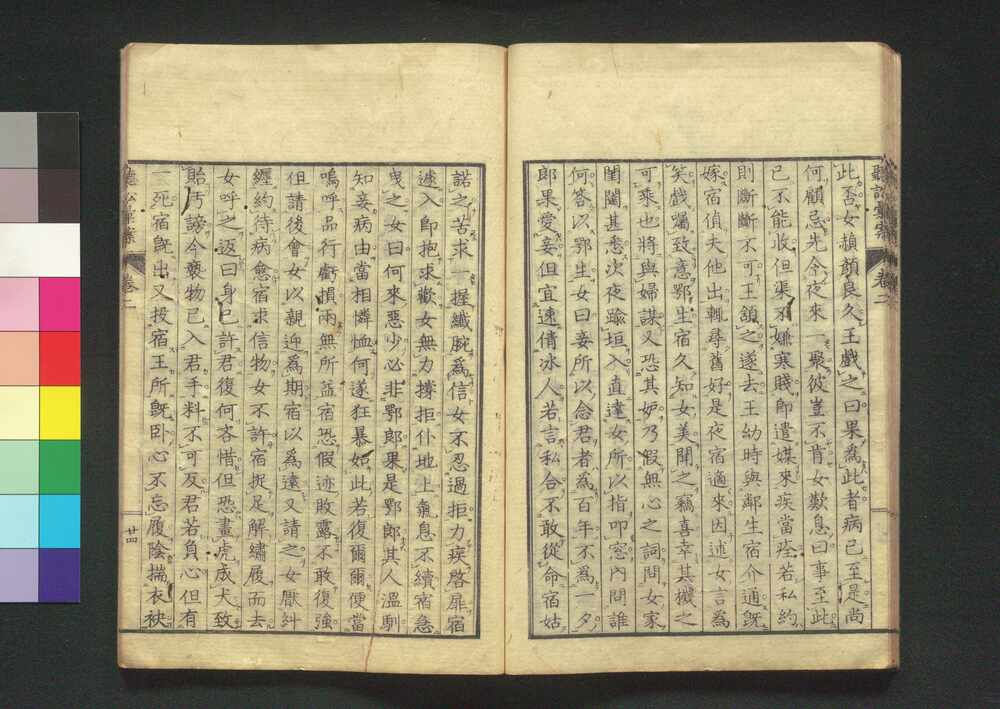 聽訟彙案 卷二
此否女赬顏良久王戲之曰果為此者病已至是尚
何顧忌先令夜來一聚彼豈不肯女歎息曰事至此
已不能收但渠不嫌寒賤即遣媒來疾當痊若私約
則斷斷不可王頷之遂去王幼時與鄰生宿介通既
嫁宿偵夫他出輒尋舊好是夜宿適來因述女言為
笑戲囑致意鄂生宿久知女美聞之竊喜幸其機之
可乘也將與婦謀又恐其妒乃假無心之詞問女家
閨闥甚悉次夜踰垣入直達女所以指叩窓內問誰
何答以鄂生女曰妾所以念君者為百年不為一夕
郎果愛妾但宜速倩冰人若言私合不敢從命宿姑
諾之苦求一握纖腕為信女不忍過拒力疾啓扉宿
遽入即抱求歡女無力撐拒仆地上氣息不續宿急
曳之女曰何來惡少必非鄂郎果是鄂郎其人溫馴
知妾病由當相憐恤何遂狂暴如此若復爾爾便當
嗚呼品行虧損兩無所益宿恐假迹敗露不敢復強
但請後會女以親迎為期宿以為遠又請之女厭糾
纏約待病愈宿求信物女不許宿捉足解繡履而去
女呼之返曰身已許君復何吝惜但恐畫虎成犬致
貽汙謗今褻物已入君手料不可反君若負心但有
一死宿既出又投宿王所既臥心不忘履陰揣衣袂
聽訟彙案 卷二 廿四